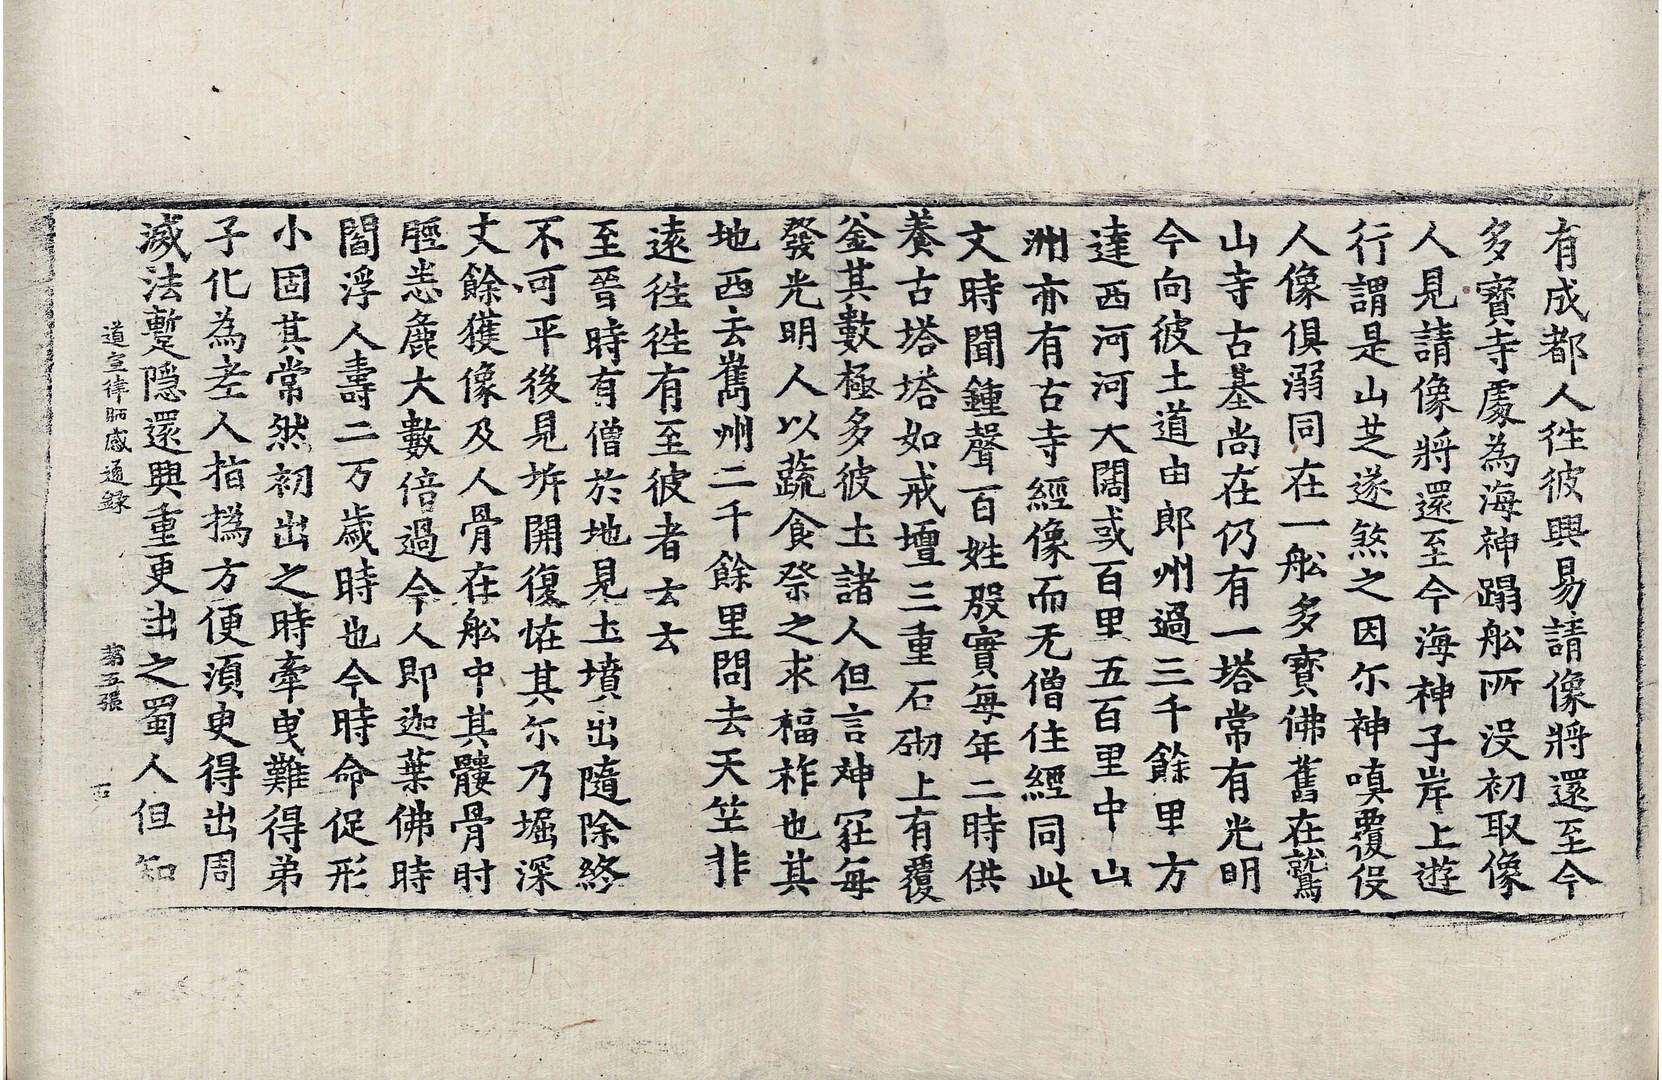 有成都人往彼興易請像將還至今
多寶寺處為海神蹋舩所没初取像
人見請像將還至今海神子岸上遊
行謂是山芝遂煞之因尒神嗔覆伇
人像俱溺同在一舩多寶佛舊在鷲
山寺古基尚在仍有一塔常有光明
今向彼土道由郎州過三千餘里方
達西河河大闊或百里五百里中山
洲亦有古寺經像而无僧住經同此
文時聞鍾聲百姓殷實每年二時供
養古塔塔如戒壇三重石砌上有覆
釜其數極多彼土諸人但言神冢每
發光明人以蔬食祭之求福祚也其
地西去嶲州二千餘里問去天竺非
遠往往有至彼者云云
至晉時有僧於地見土墳出隨除終
不可平後見坼開復恠其尒乃堀深
丈餘獲像及人骨在舩中其髏骨肘
脛悉麁大數倍過今人即迦葉佛時
閻浮人壽二万歲時也今時命促形
小固其常然初出之時牽曳難得弟
子化為老人指撝方便湏臾得出周
滅法蹔隱還興重更出之蜀人但知
道宣律師感通録　第五張　石